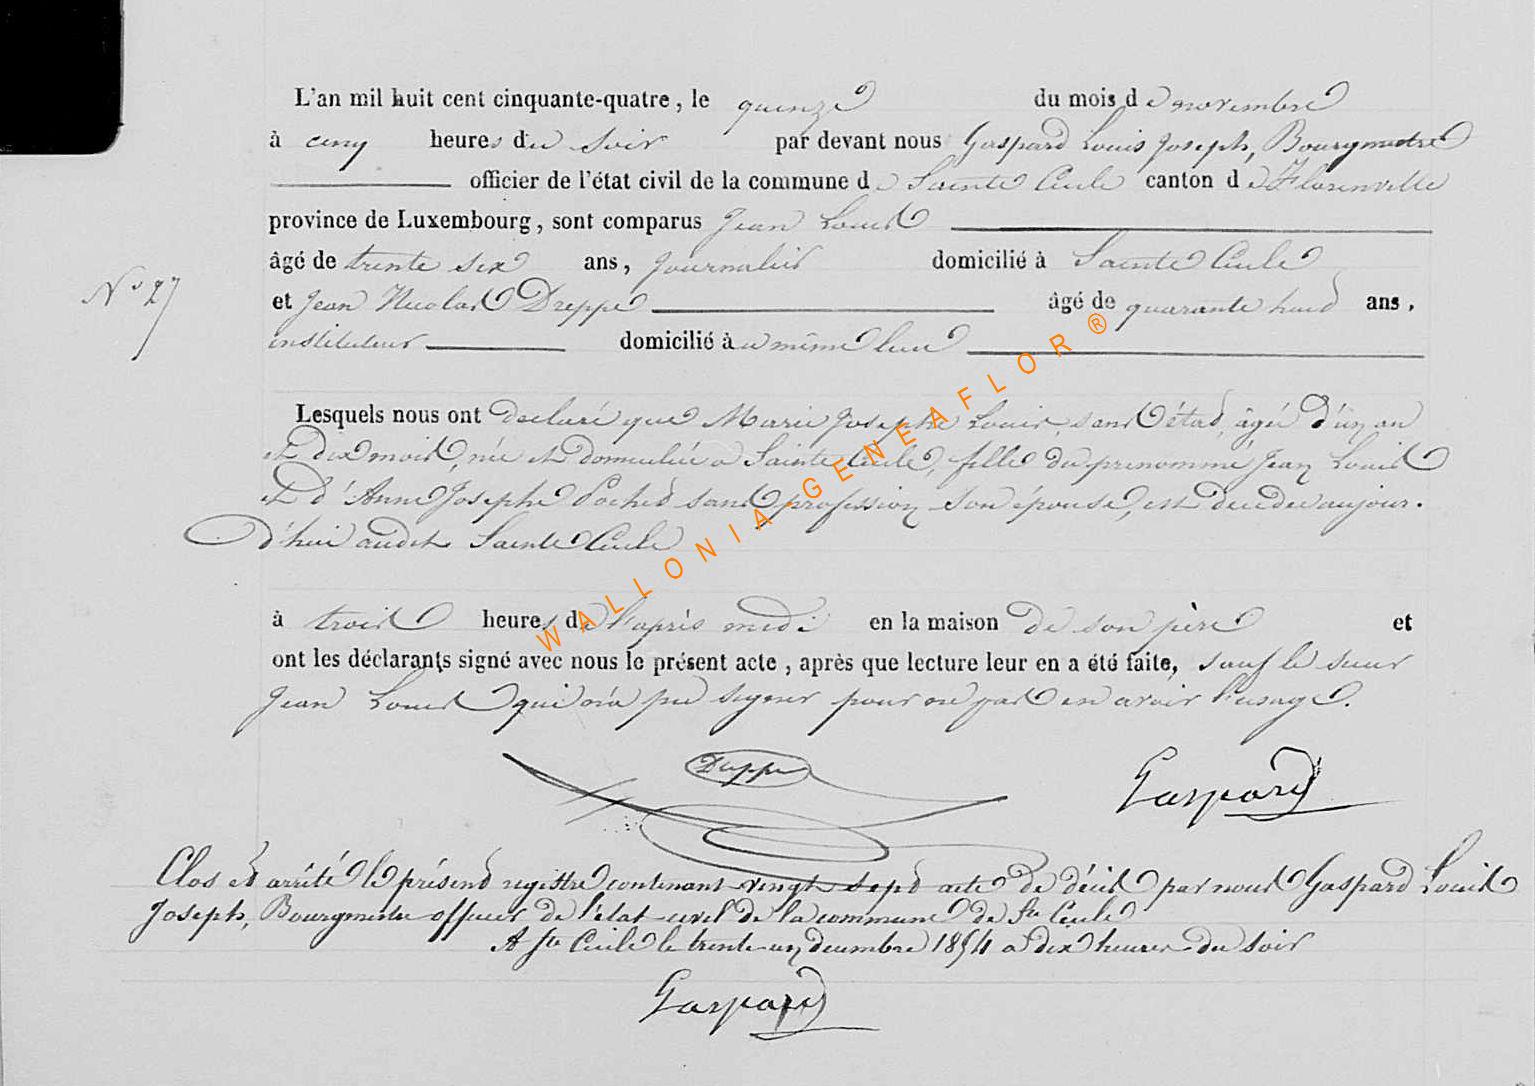 L'an mil huit cent cinquante-quatre, le quinze du mois de novembre
à cinq heures du soir par devant nous Gaspard Louis Joseph, Bourgmestre
officier de l'état civil de la commune de Sainte Cecile canton de Florenville
province de Luxembourg, sont comparus Jean Louis
âgé de trente six ans, journalier domicilié à Sainte Cecile
N° 27
et Jean Nicolas Dreppe âgé de quarante huit ans,
instituteur domicilié au même lieu
Lesquels nous ont declaré que Marie Josephe Louis, sans état, âgée d'un an
et dix mois, née et domiciliée a Sainte Cecile, fille du prenommé Jean Louis
et d'Anne Josephe Pochet sans profession son épouse, est decedee aujour-
d'hui audit Sainte Cecile
à trois heures de l'après midi en la maison de son père et
ont les déclarants signé avec nous le présent acte, après que lecture leur en a été faite, sauf le sieur
Jean Louis qui n'a pu signer pour ne pas en avoir l'usage.
Dreppe
Gaspard
Clos et arrêté le présent registre contenant vingt sept acte de décès par nous Gaspard Louis
Joseph, Bourgmestre officier de l'état civil de la commune de Ste Cecile
A Ste Cecile le trente un decembre 1854 a dix heures du soir
Gaspard
WALLONIA-GENEAFLOR ®